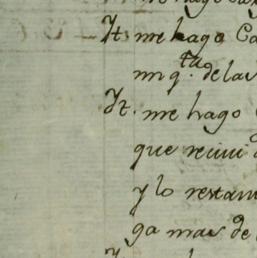 me hago Ca
It. me hago Ca
mi q.ta de las
It. me hago
que reciui d
y lo restan
ga mas de